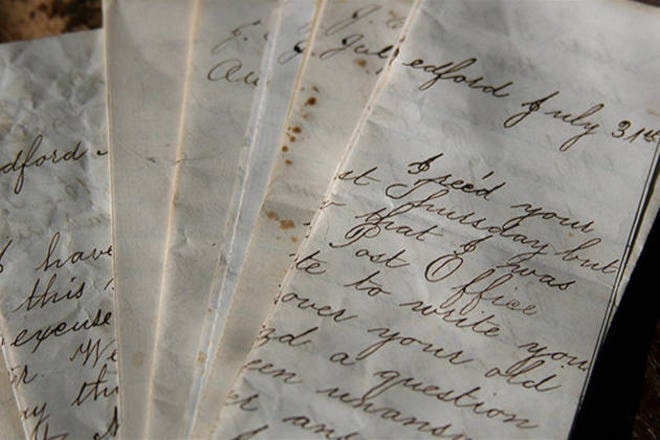 dford
I have
this
excuse
r. We
ay th
J.
Au
J. Jul
edford July 31st
I rec'd your
st Thursday but
that I was
Post Office
te to write you
over your old
d a question
een unansw
er an